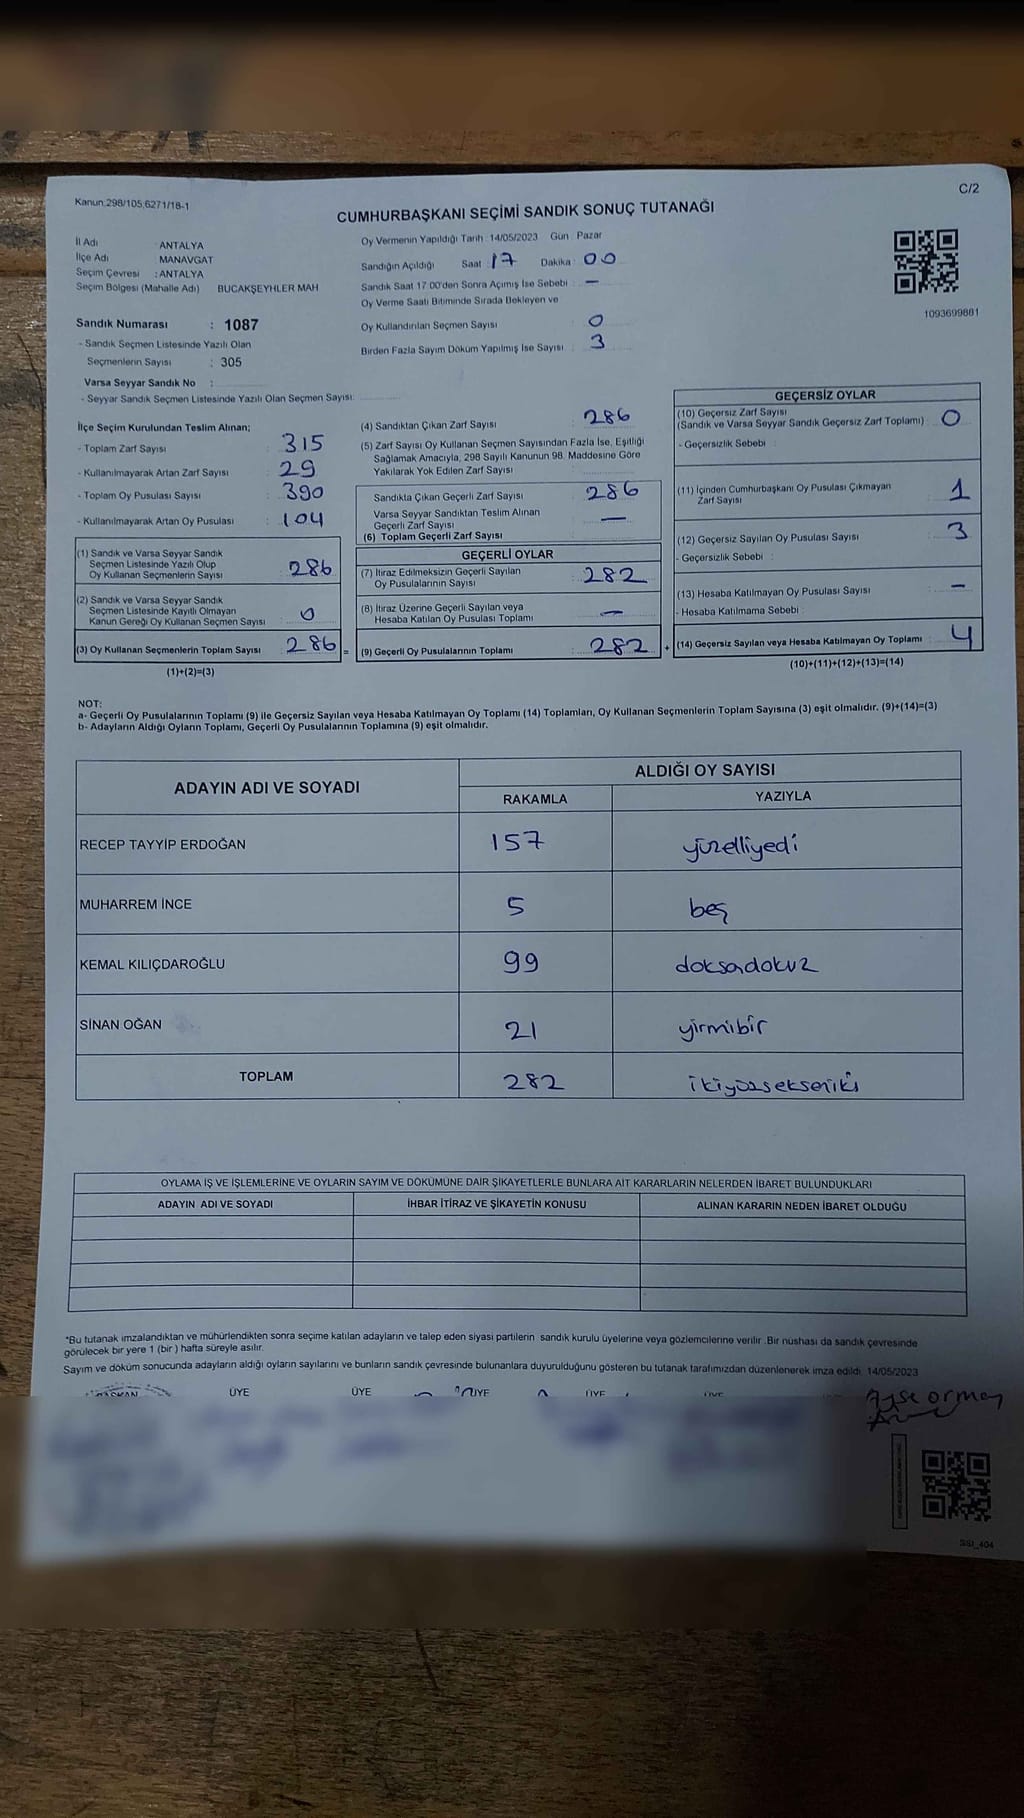 Kanun:298/105;6271/18-1
C/2
CUMHURBAŞKANI SEÇİMİ SANDIK SONUÇ TUTANAĞI
İl Adı : ANTALYA
İlçe Adı : MANAVGAT
Seçim Çevresi : ANTALYA
Seçim Bölgesi (Mahalle Adı) BUCAKŞEYHLER MAH
Sandık Numarası : 1087
- Sandık Seçmen Listesinde Yazılı Olan
Seçmenlerin Sayısı : 305
Varsa Seyyar Sandık No :
- Seyyar Sandık Seçmen Listesinde Yazılı Olan Seçmen Sayısı:
Oy Vermenin Yapıldığı Tarih : 14/05/2023 Gün : Pazar
Sandığın Açıldığı Saat : 17 Dakika : 00
Sandık Saat 17:00'den Sonra Açımış İse Sebebi : —
Oy Verme Saati Bitiminde Sırada Bekleyen ve
Oy Kullandırılan Seçmen Sayısı : 0
Birden Fazla Sayım Döküm Yapılmış İse Sayısı : 3
1093699881
İlçe Seçim Kurulundan Teslim Alınan;
- Toplam Zarf Sayısı : 315
- Kullanılmayarak Artan Zarf Sayısı : 29
- Toplam Oy Pusulası Sayısı : 390
- Kullanılmayarak Artan Oy Pusulası : 104
(1) Sandık ve Varsa Seyyar Sandık
Seçmen Listesinde Yazılı Olup
Oy Kullanan Seçmenlerin Sayısı : 286
(2) Sandık ve Varsa Seyyar Sandık
Seçmen Listesinde Kayıtlı Olmayan
Kanun Gereği Oy Kullanan Seçmen Sayısı : 0
(3) Oy Kullanan Seçmenlerin Toplam Sayısı : 286 =
(1)+(2)=(3)
(4) Sandıktan Çıkan Zarf Sayısı : 286
(5) Zarf Sayısı Oy Kullanan Seçmen Sayısından Fazla İse, Eşitliği
Sağlamak Amacıyla, 298 Sayılı Kanunun 98. Maddesine Göre
Yakılarak Yok Edilen Zarf Sayısı :
Sandıkta Çıkan Geçerli Zarf Sayısı : 286
Varsa Seyyar Sandıktan Teslim Alınan
Geçerli Zarf Sayısı : —
(6) Toplam Geçerli Zarf Sayısı
GEÇERLİ OYLAR
(7) İtiraz Edilmeksizin Geçerli Sayılan
Oy Pusulalarının Sayısı : 282
(8) İtiraz Üzerine Geçerli Sayılan veya
Hesaba Katılan Oy Pusulası Toplamı : —
(9) Geçerli Oy Pusulalarının Toplamı : 282 +
GEÇERSİZ OYLAR
(10) Geçersiz Zarf Sayısı
(Sandık ve Varsa Seyyar Sandık Geçersiz Zarf Toplamı) : 0
- Geçersizlik Sebebi :
(11) İçinden Cumhurbaşkanı Oy Pusulası Çıkmayan
Zarf Sayısı : 1
(12) Geçersiz Sayılan Oy Pusulası Sayısı : 3
- Geçersizlik Sebebi :
(13) Hesaba Katılmayan Oy Pusulası Sayısı : —
- Hesaba Katılmama Sebebi :
(14) Geçersiz Sayılan veya Hesaba Katılmayan Oy Toplamı : 4
(10)+(11)+(12)+(13)=(14)
NOT:
a- Geçerli Oy Pusulalarının Toplamı (9) ile Geçersiz Sayılan veya Hesaba Katılmayan Oy Toplamı (14) Toplamları, Oy Kullanan Seçmenlerin Toplam Sayısına (3) eşit olmalıdır. (9)+(14)=(3)
b- Adayların Aldığı Oyların Toplamı, Geçerli Oy Pusulalarının Toplamına (9) eşit olmalıdır.
ADAYIN ADI VE SOYADI ALDIĞI OY SAYISI
RAKAMLA YAZIYLA
RECEP TAYYİP ERDOĞAN 157 yüzelliyedi
MUHARREM İNCE 5 beş
KEMAL KILIÇDAROĞLU 99 doksadokuz
SİNAN OĞAN 21 yirmibir
TOPLAM 282 ikiyüzsekseniki
OYLAMA İŞ VE İŞLEMLERİNE VE OYLARIN SAYIM VE DÖKÜMÜNE DAİR ŞİKAYETLERLE BUNLARA AİT KARARLARIN NELERDEN İBARET BULUNDUKLARI
ADAYIN ADI VE SOYADI İHBAR İTİRAZ VE ŞİKAYETİN KONUSU ALINAN KARARIN NEDEN İBARET OLDUĞU
*Bu tutanak imzalandıktan ve mühürlendikten sonra seçime katılan adayların ve talep eden siyasi partilerin sandık kurulu üyelerine veya gözlemcilerine verilir .Bir nüshası da sandık çevresinde
görülecek bir yere 1 (bir ) hafta süreyle asılır.
Sayım ve döküm sonucunda adayların aldığı oyların sayılarını ve bunların sandık çevresinde bulunanlara duyurulduğunu gösteren bu tutanak tarafımızdan düzenlenerek imza edildi. 14/05/2023
BAŞKAN ÜYE ÜYE ÜYE ÜYE ÜYE
SSI_404